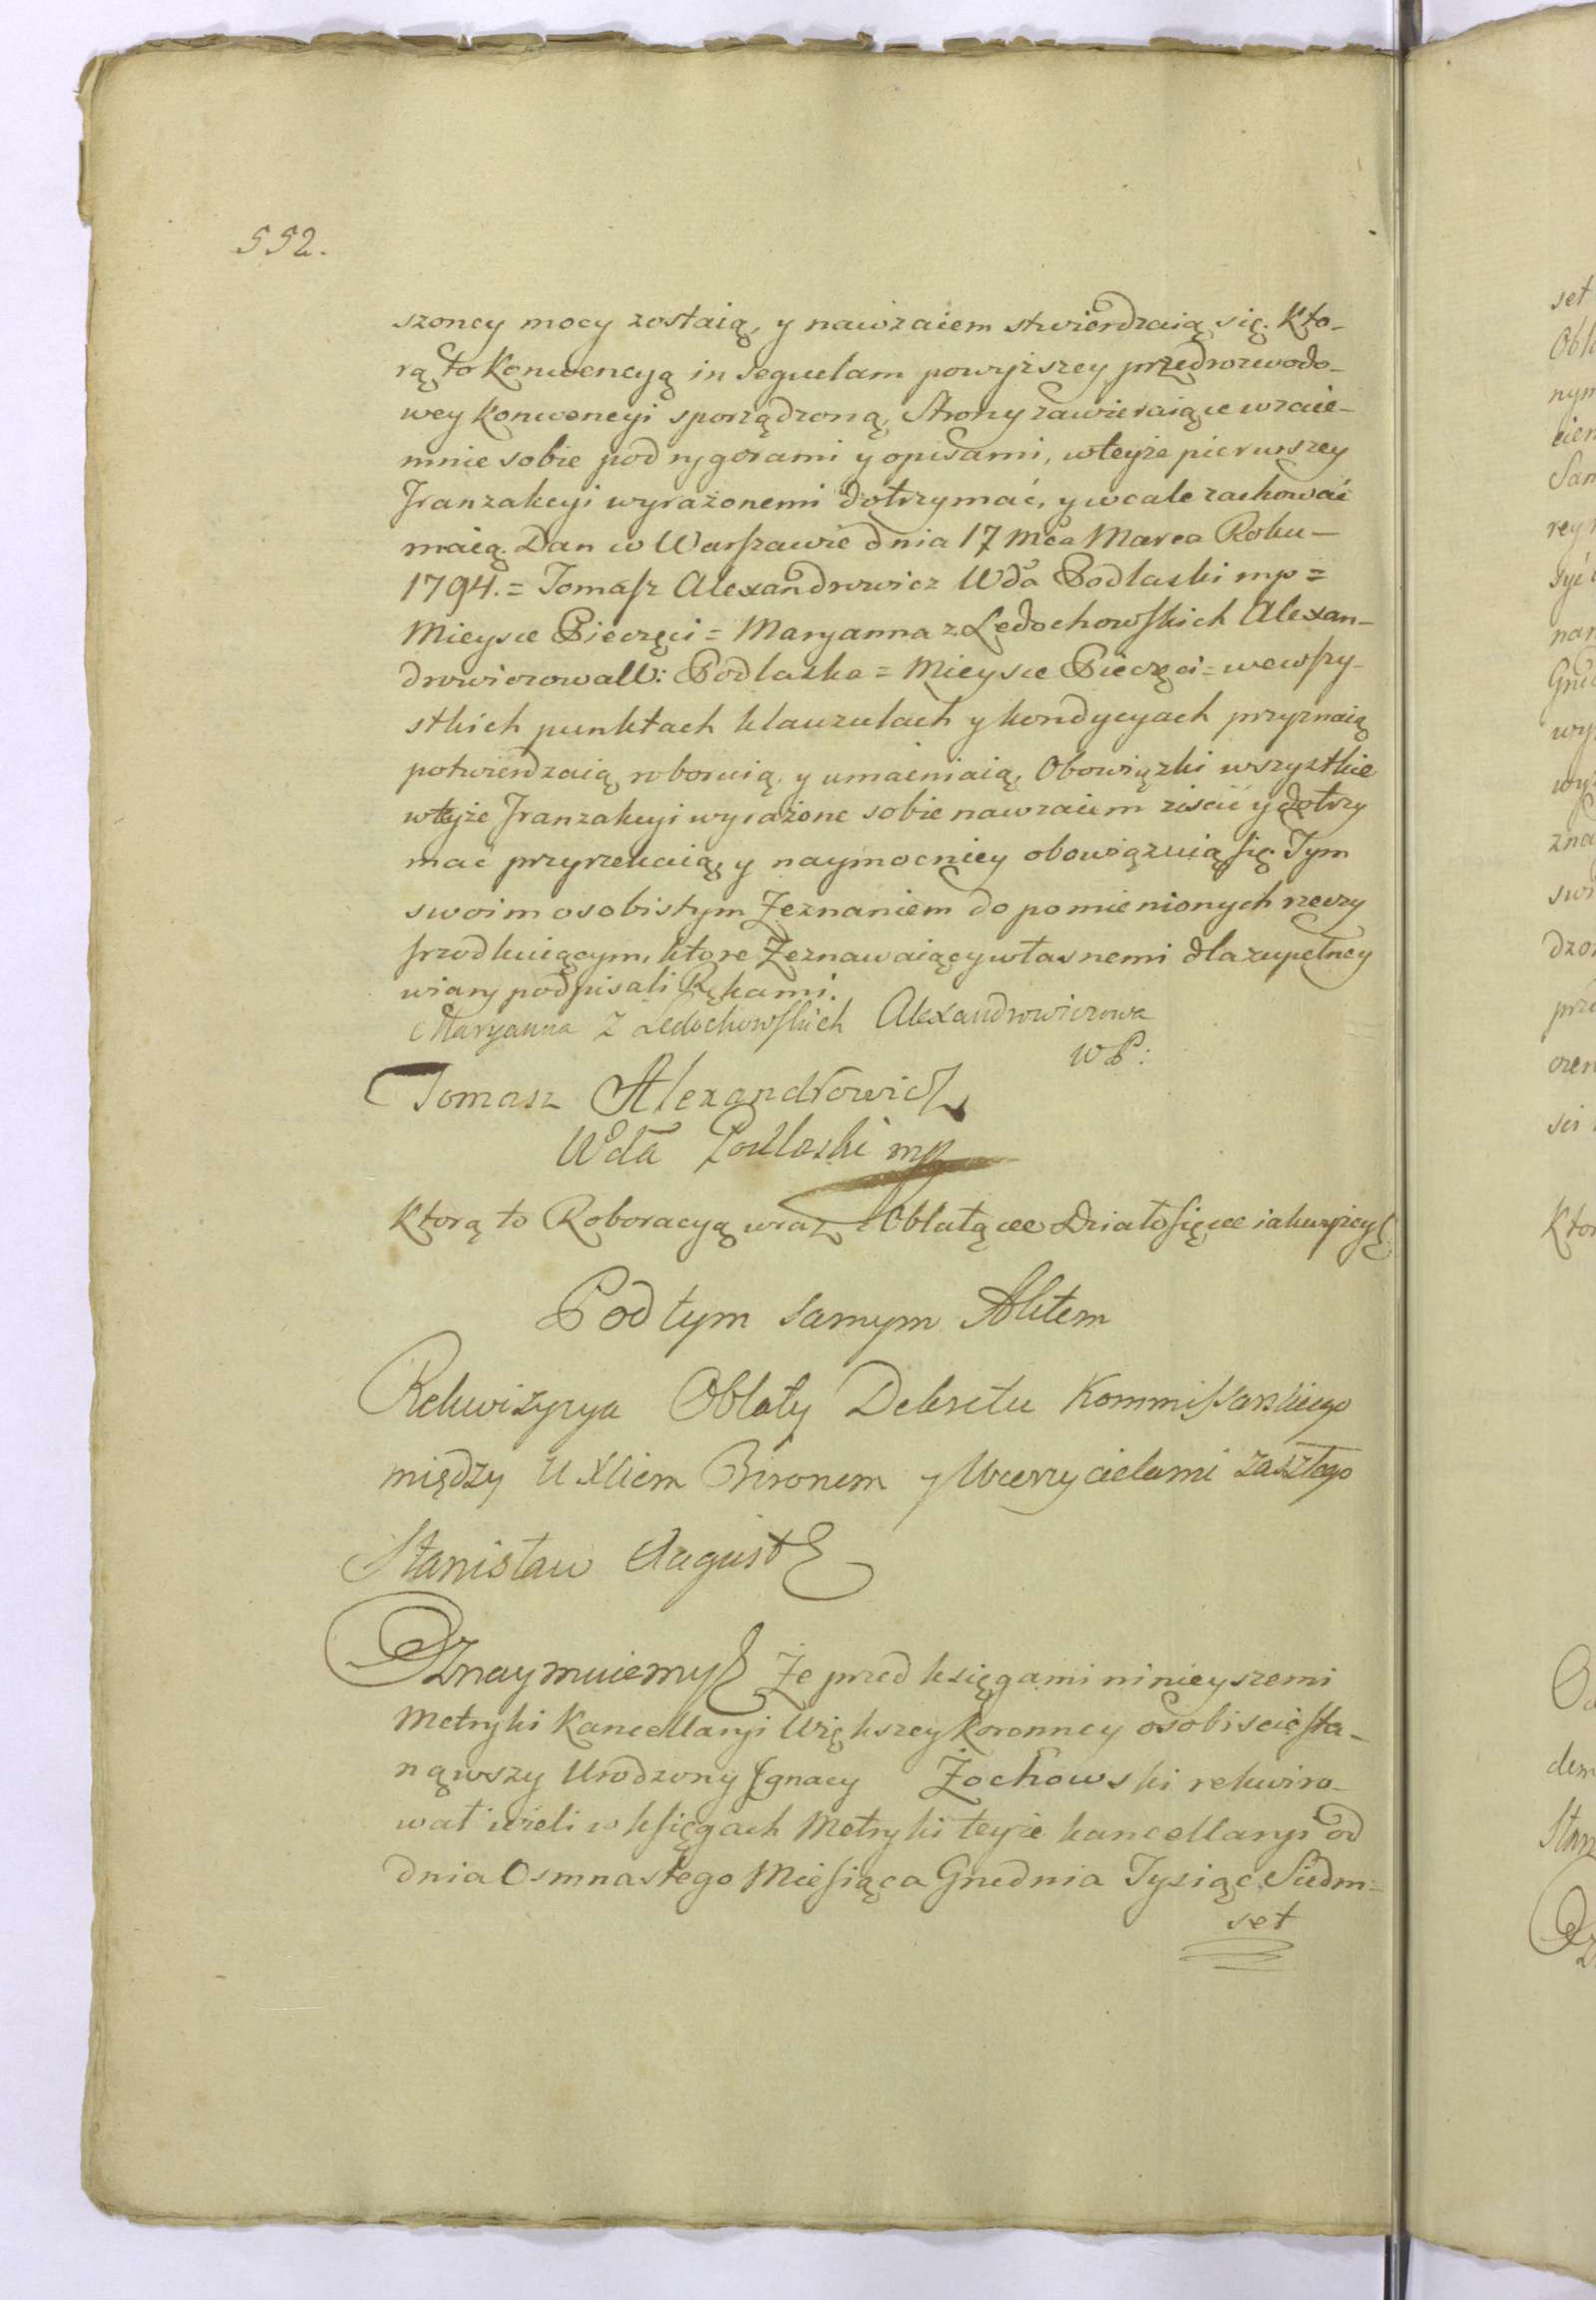 552.
szoney mocy zostaią, y nawzaiem stwierdzaią się. Kto-
rą to Konwencyą in sequelam powyższey przedrozwodo-
wey konwencyi sporządzoną, Strony zawieraiące wzaie-
mnie sobie pod rygorami y opisami, wteyże pierwszey
Tranzakcyi wyrażonemi dotrzymać, y wcale zachować
maią. Dan w Warszawie dnia 17 Mca Marca Roku-
1794. = Tomasz Alexandrowicz Wda Podlaski mp =
Mieysce Pieczęci = Maryanna z Lędochowskich Alexan-
drowiczowa W: Podlaska = Mieysce Pieczęci = we wszy-
stkich punktach klauzulach y kondycyach przyznaią
potwierdzaią roboruią, y umacniaią, Obowiązki wszystkie
wteyże Tranzakcyi wyrażone sobie nawzaiem ziscić y dotrzy
mać przyrzekaią, y naymocniey obowiązuią się Tym
swoim osobistym Zeznaniem do pomienionych rzeczy
szrodkuiącym, ktore Zeznawaiący własnemi dla zupełney
wiary podpisali Rękami.
Maryanna z Ledochowskich Alexandrowiczowa
WP:
Tomasz Alexandrowicz
Wda Podlaski mp
Ktorą to Roboracyą wraz z Oblatą Działo się iak wyżey
Pod tym samym Aktem
Rekwizycya Oblaty Dekretu Kommissarskiego
między U Xciem Bironem y Wierzycielami zaszłego
Stanisław August
Oznaymuiemy Ze przed księgami ninieyszemi
Metryki Kancellaryi Większey Koronney osobiscie sta-
nąwszy Urodzony Ignacy Żochowski rekwiro-
wał iżeli w księgach Metryki teyże kancellaryi od
dnia Osmnastego Miesiąca Grudnia Tysiąc Siedm-
set
set
nym
rey
wy
zna
Ktor
dem